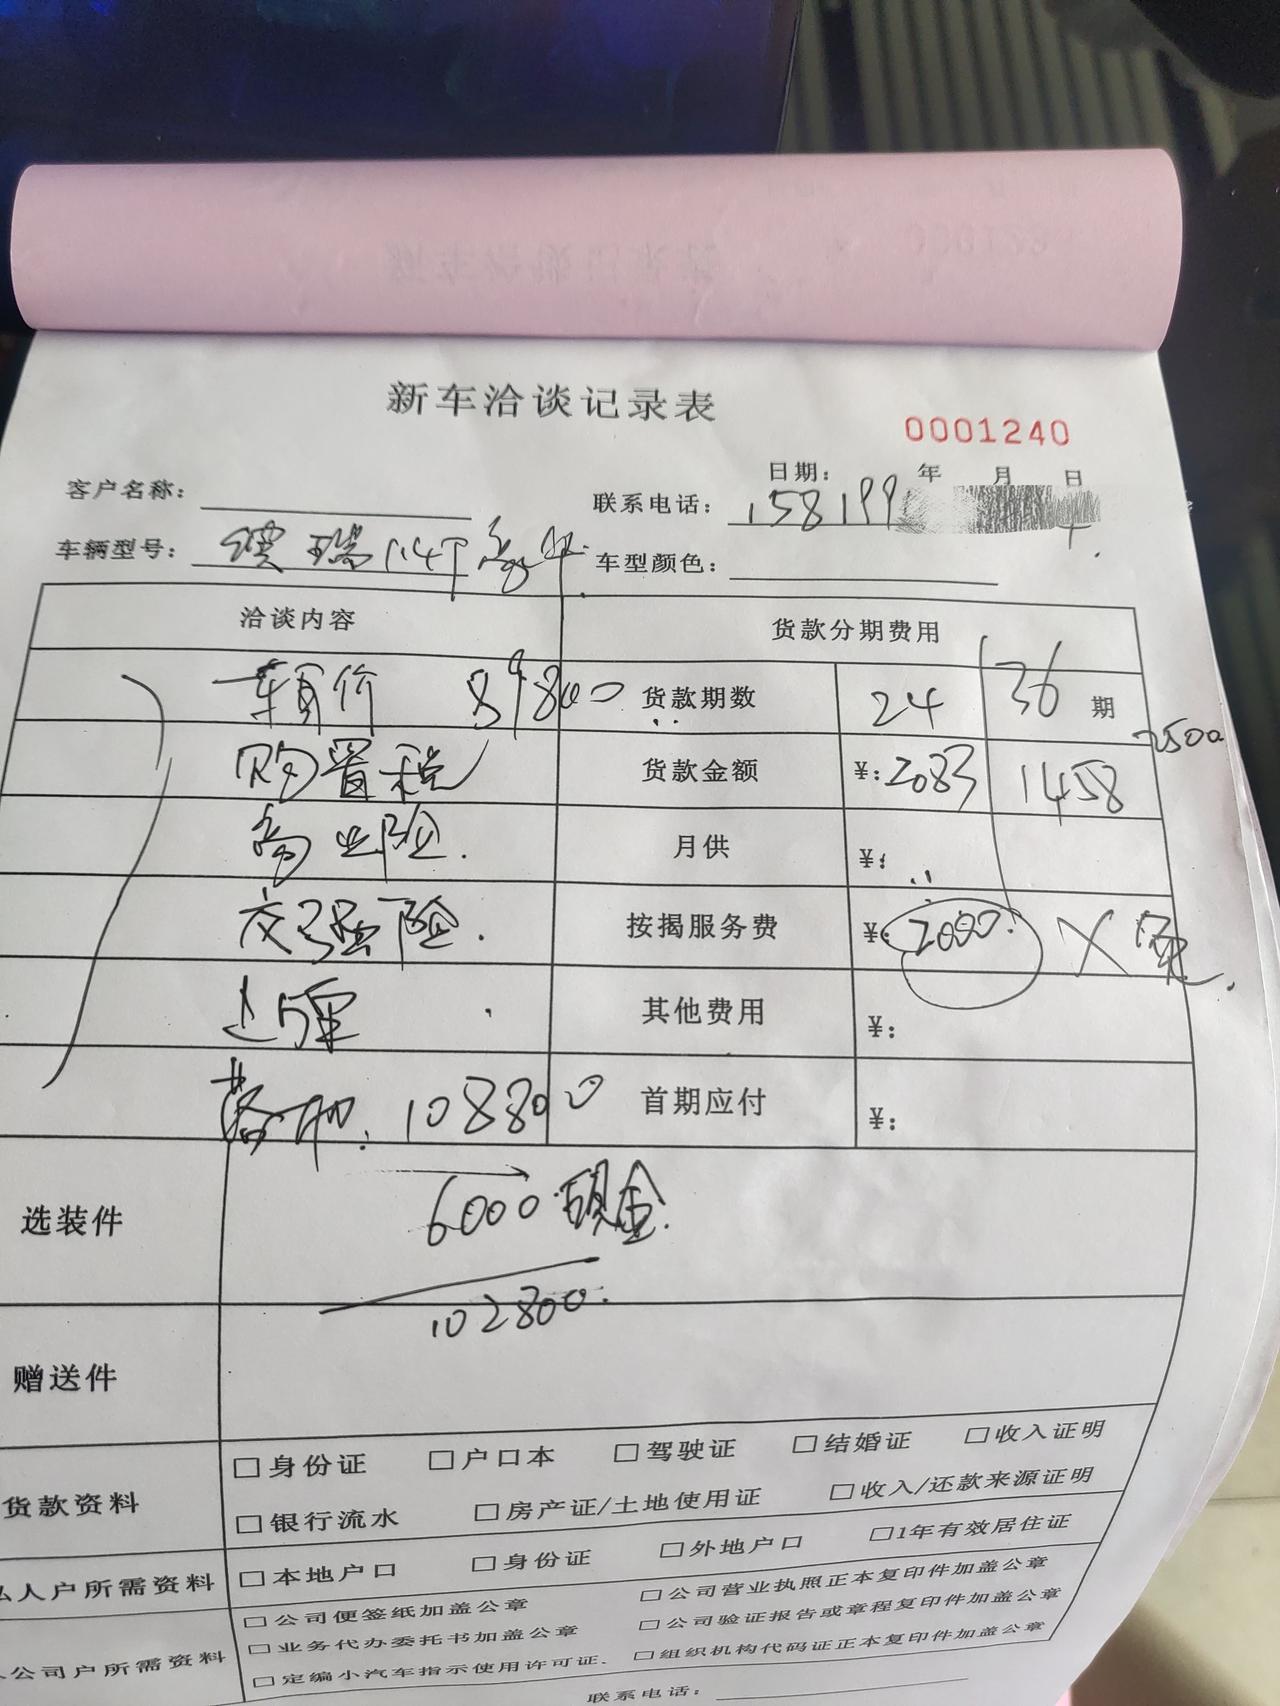 新车洽谈记录表
0001240
日期： 年 月 日
客户名称：
联系电话：158199
车辆型号：缤瑞1.4T
车型颜色：
洽谈内容 货款分期费用
车身价 89800 货款期数 24 36 期
购置税 货款金额 ¥：2083 1458 2500
商业险. 月供 ¥：
交强险. 按揭服务费 ¥：2000. X 免.
其他费用 ¥：
落地. 108800 首期应付 ¥：
选装件 6000 现金.
102800.
赠送件
货款资料 □身份证 □户口本 □驾驶证 □结婚证 □收入证明
□银行流水 □房产证/土地使用证 □收入/还款来源证明
人户所需资料 □本地户口 □身份证 □外地户口 □1年有效居住证
公司户所需资料 □公司便签纸加盖公章 □公司营业执照正本复印件加盖公章
□业务代办委托书加盖公章 □公司验证报告或章程复印件加盖公章
□定编小汽车指示使用许可证. □组织机构代码证正本复印件加盖公章
联系电话：